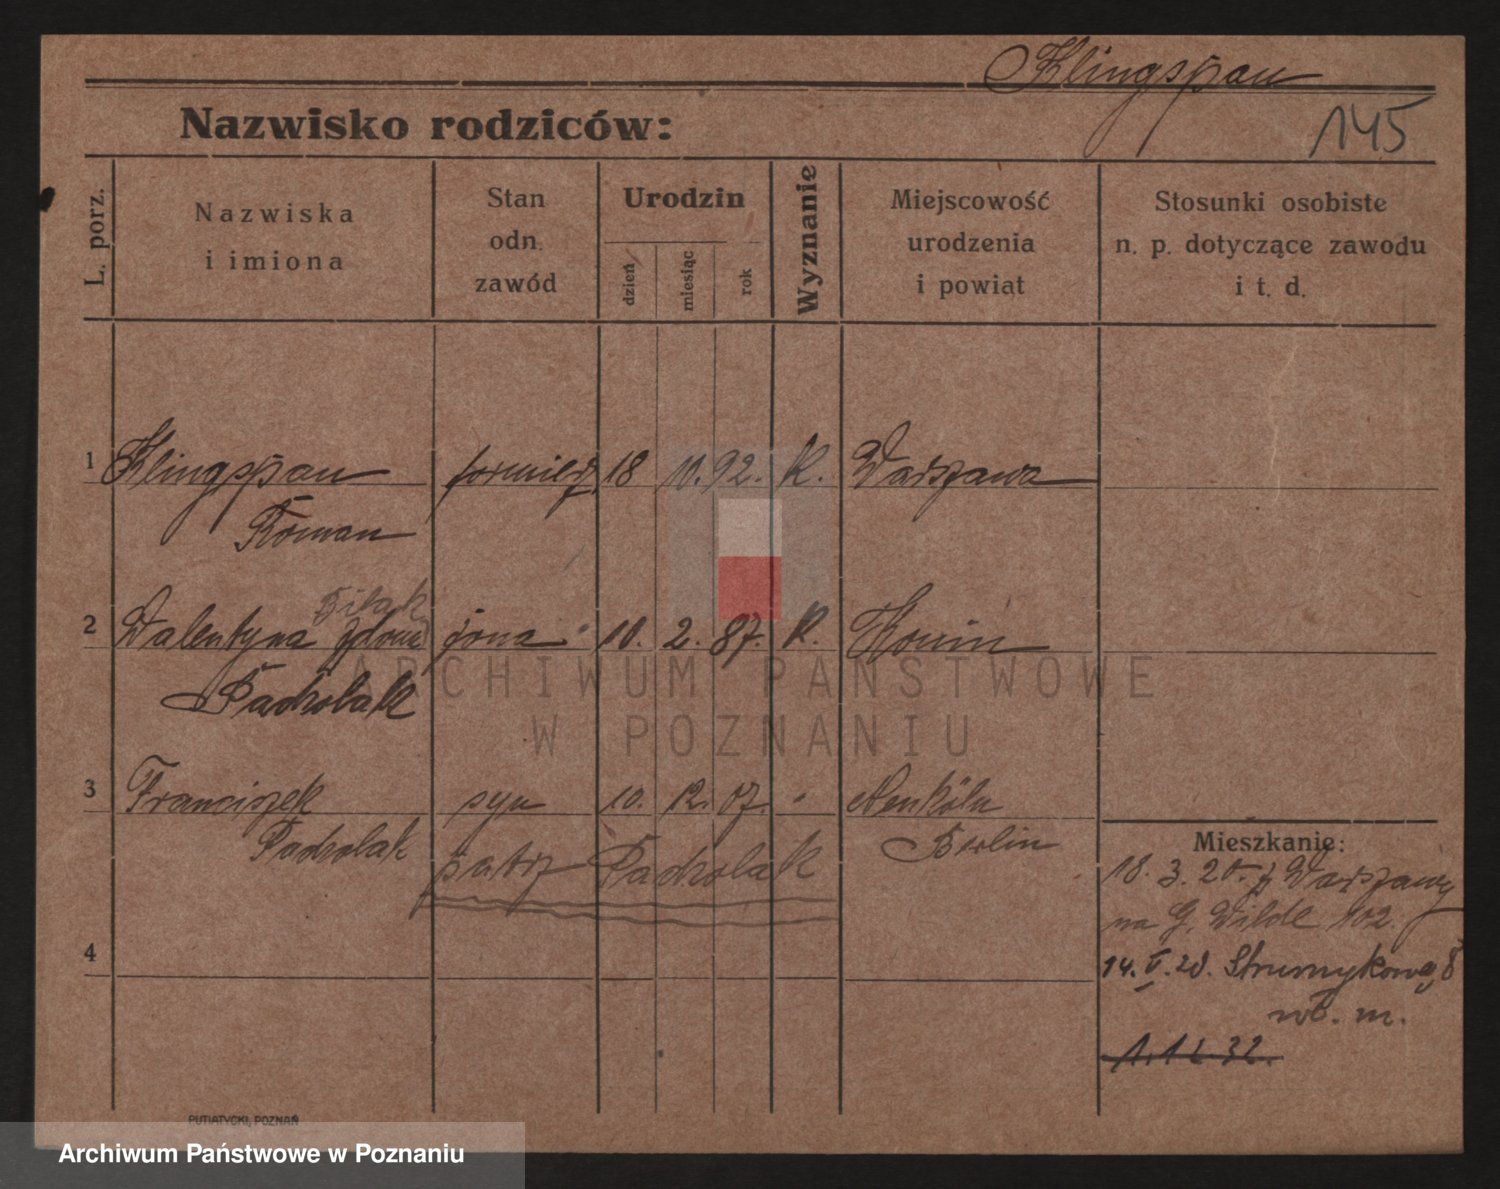 Klingspan
145
Nazwisko rodziców:
L. porz.
Nazwiska
i imiona
Stan
odn.
zawód
Urodzin
dzień
miesiąc
rok
Wyznanie
Miejscowość
urodzenia
i powiat
Stosunki osobiste
n. p. dotyczące zawodu
i t. d.
1 Klingspan formierz 18 10. 92. K. Warszawa
Roman
2 Walentyna żona 10. 2. 87. K. Konin
Padrolak
3 Franciszek syn 10. 12. 07. Neukoln
Padrolak Berlin
patrz Padrolak
Mieszkanie:
18. 3. 20. z Warszawy
na G. Wilde 102.
14. V. 28. Strumykowa 8
wł. m.
1. 12. 32.
4
PUTIATYCKI, POZNAŃ
ARCHIWUM PAŃSTWOWE
W POZNANIU
Archiwum Państwowe w Poznaniu